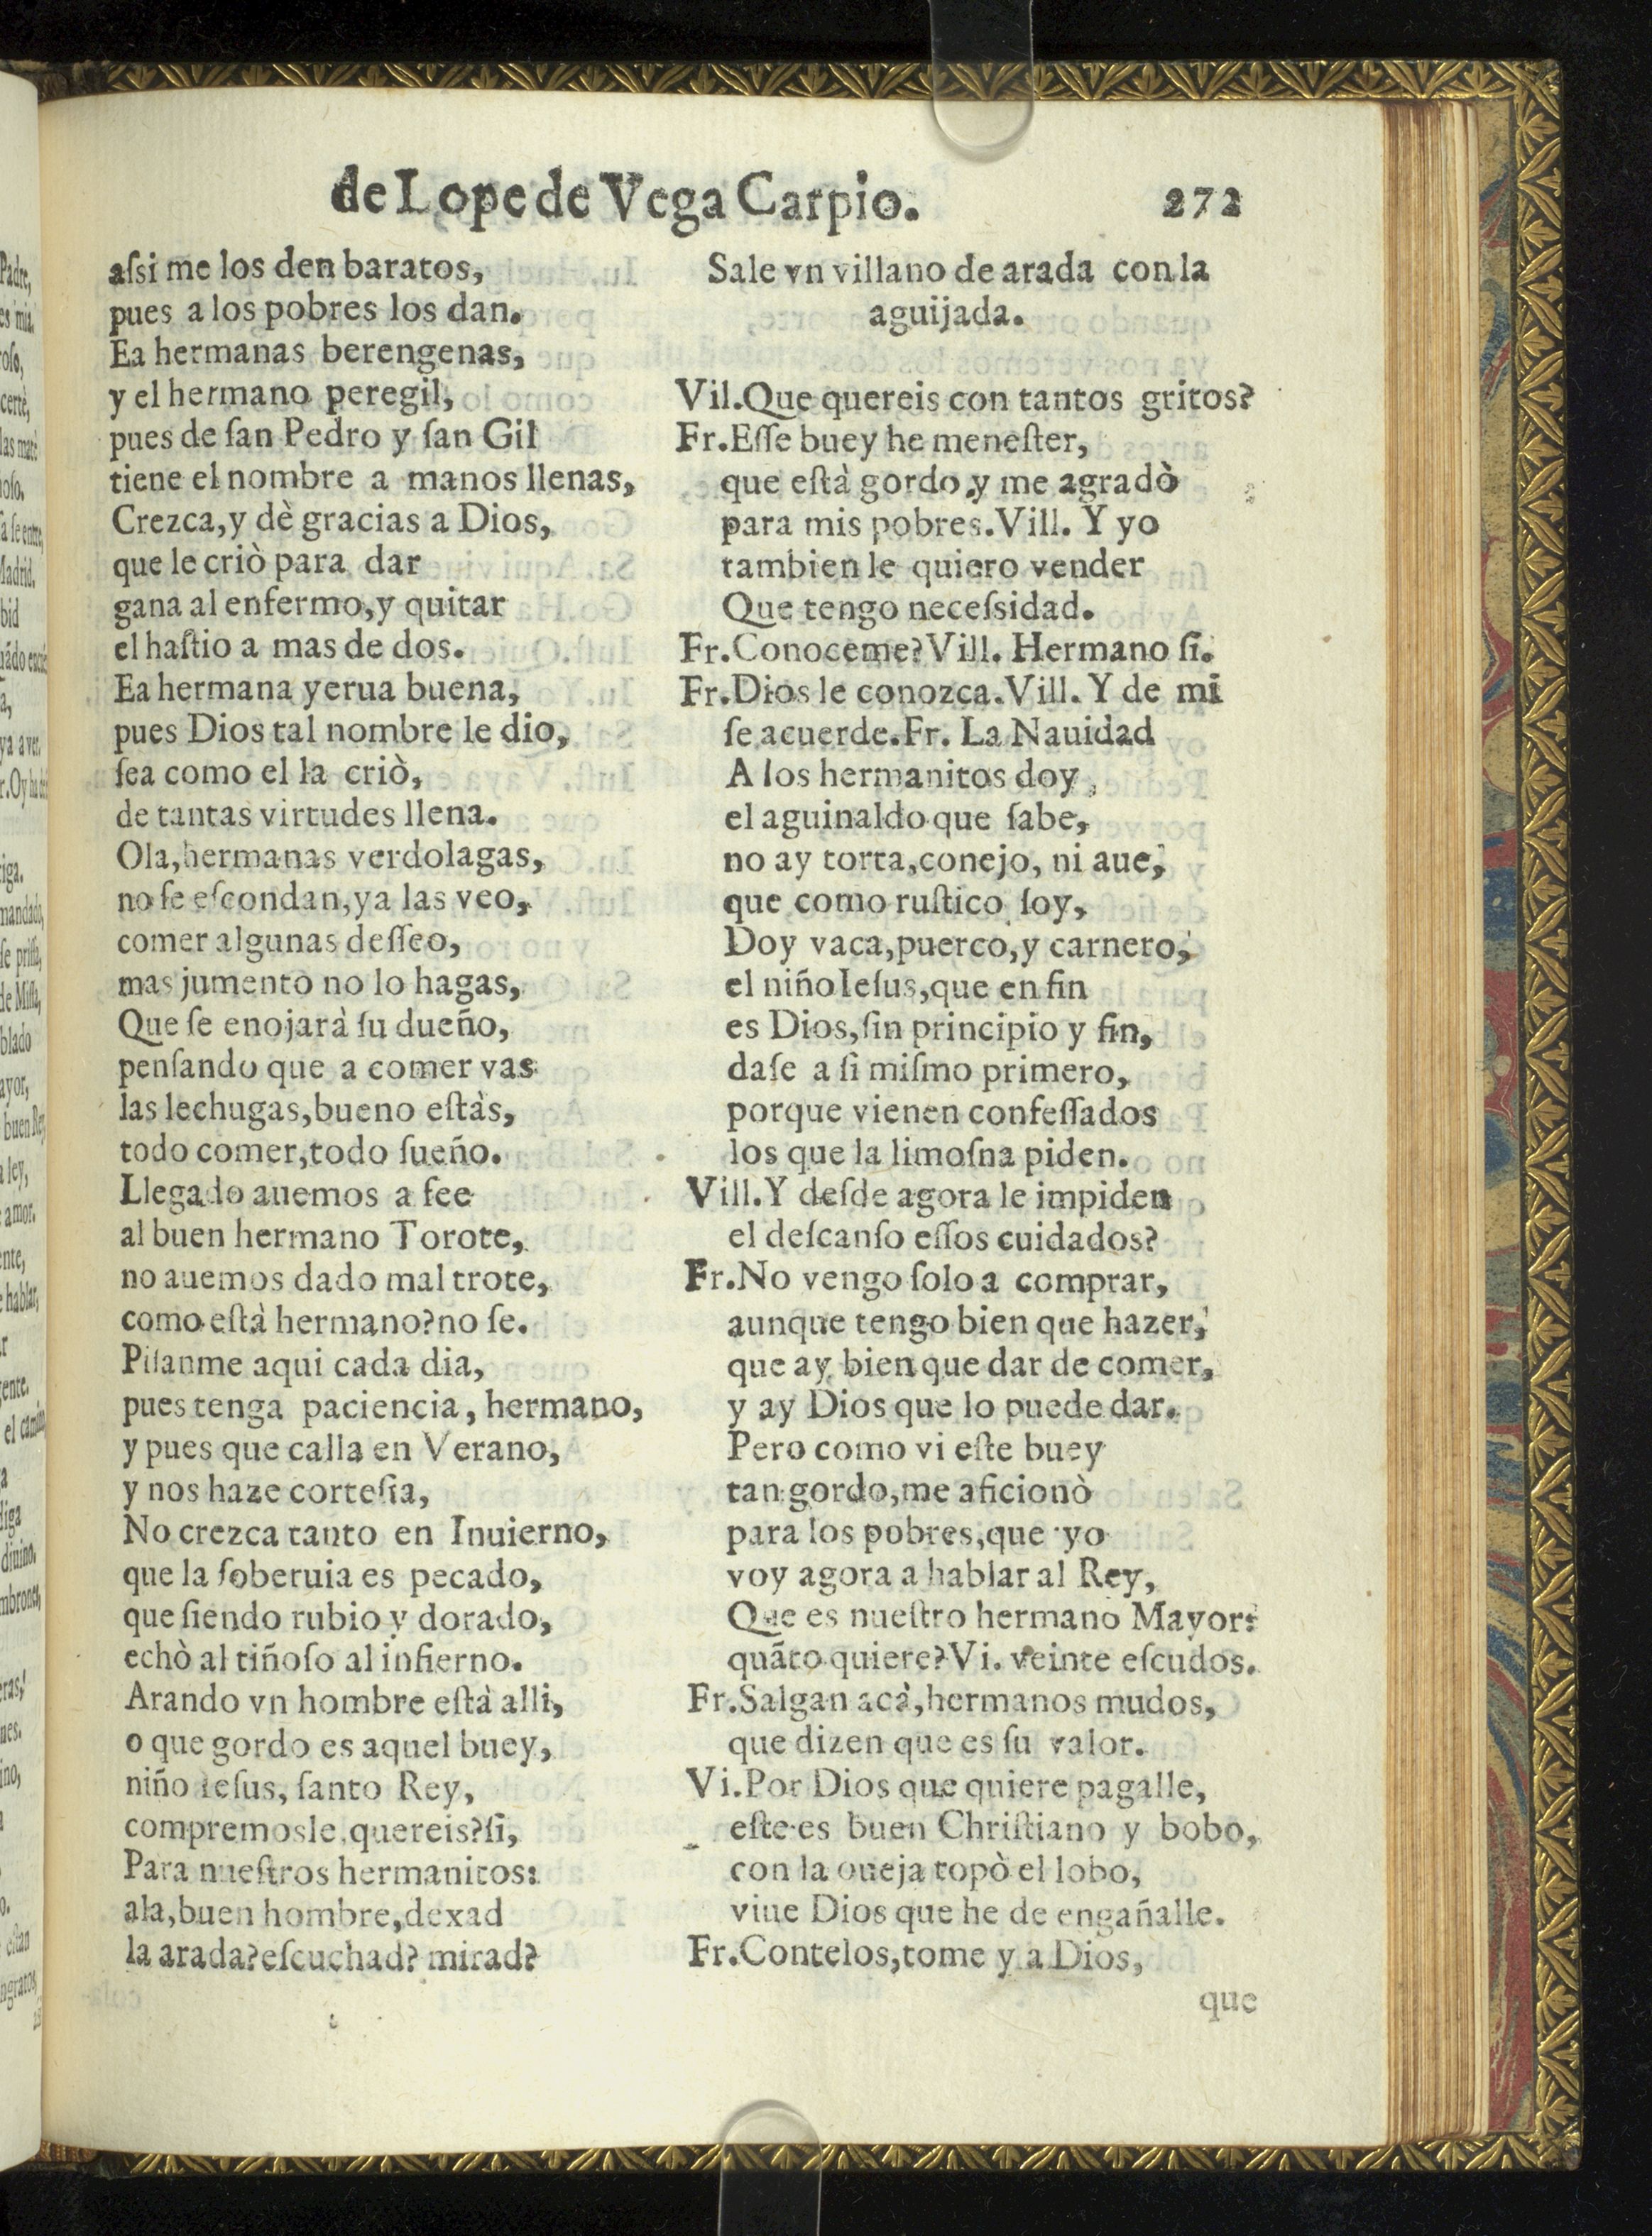 de Lope de Vega Carpio. 272
aſsi me los den baratos,
pues a los pobres los dan.
Ea hermanas berengenas,
y el hermano peregil,
pues de ſan Pedro y ſan Gil
tiene el nombre a manos llenas,
Crezca, y dè gracias a Dios,
que le criò para dar
gana al enfermo, y quitar
el haſtio a mas de dos.
Ea hermana yerua buena,
pues Dios tal nombre le dio,
ſea como el la criò,
de tantas virtudes llena.
Ola, hermanas verdolagas,
no ſe eſcondan, ya las veo,
comer algunas deſſeo,
mas jumento no lo hagas,
Que ſe enojarà ſu dueño,
penſando que a comer vas
las lechugas, bueno eſtàs,
todo comer, todo ſueño.
Llegado auemos a fee
al buen hermano Torote,
no auemos dado mal trote,
como eſtà hermano? no ſe.
Piſanme aqui cada dia,
pues tenga paciencia, hermano,
y pues que calla en Verano,
y nos haze corteſia,
No crezca tanto en Inuierno,
que la ſoberuia es pecado,
que ſiendo rubio y dorado,
echò al tiñoſo al infierno.
Arando vn hombre eſtà alli,
o que gordo es aquel buey,
niño Ieſus, ſanto Rey,
compremosle, quereis? ſi,
Para nueſtros hermanitos:
ala, buen hombre, dexad
la arada? eſcuchad? mirad?
Sale vn villano de arada con la
aguijada.
Vil. Que quereis con tantos gritos?
Fr. Eſſe buey he meneſter,
que eſtà gordo, y me agradò
para mis pobres. Vill. Y yo
tambien le quiero vender
Que tengo neceſsidad.
Fr. Conoceme? Vill. Hermano ſi.
Fr. Dios le conozca. Vill. Y de mi
ſe acuerde. Fr. La Nauidad
A los hermanitos doy,
el aguinaldo que ſabe,
no ay torta, conejo, ni aue,
que como ruſtico ſoy,
Doy vaca, puerco, y carnero,
el niño Ieſus, que en fin
es Dios, ſin principio y fin,
daſe a ſi miſmo primero,
porque vienen confeſſados
los que la limoſna piden.
Vill. Y deſde agora le impiden
el deſcanſo eſſos cuidados?
Fr. No vengo ſolo a comprar,
aunque tengo bien que hazer,
que ay bien que dar de comer,
y ay Dios que lo puede dar.
Pero como vi eſte buey
tan gordo, me aficionò
para los pobres, que yo
voy agora a hablar al Rey,
Que es nueſtro hermano Mayor:
quãto quiere? Vi. veinte eſcudos.
Fr. Salgan acà, hermanos mudos,
que dizen que es ſu valor.
Vi. Por Dios que quiere pagalle,
eſte es buen Chriſtiano y bobo,
con la oueja topò el lobo,
viue Dios que he de engañalle.
Fr. Contelos, tome y a Dios,
que